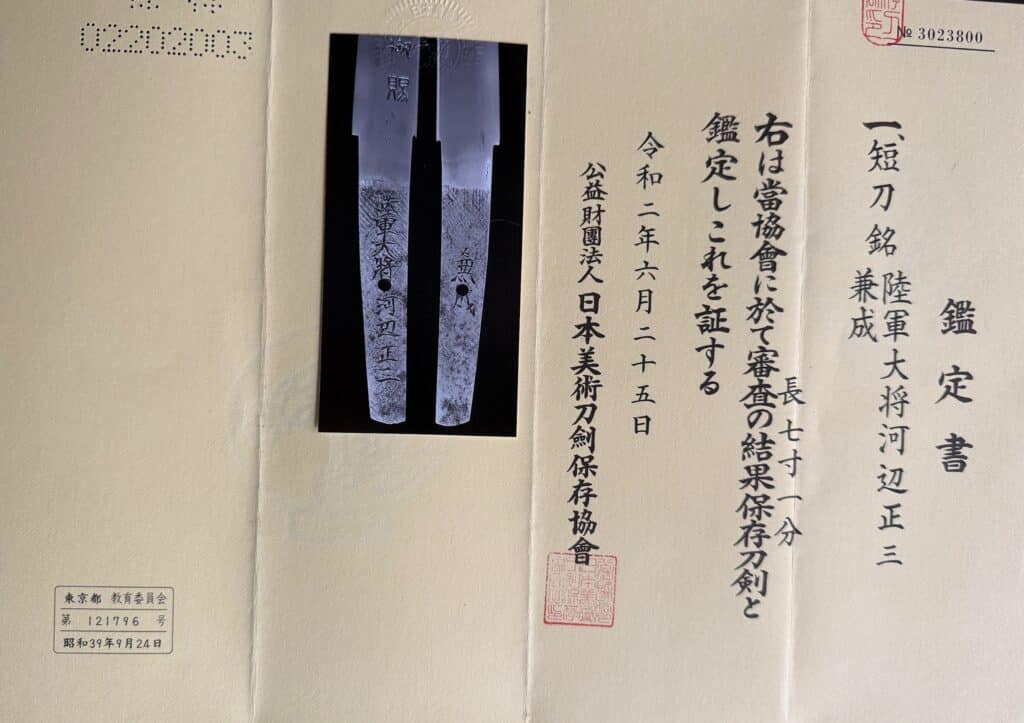 № 3023800
鑑定書
一、短刀 銘 陸軍大将河辺正三
兼成
長 七寸一分
右は當協會に於て審査の結果保存刀剣と
鑑定しこれを証する
令和二年六月二十五日
公益財團法人 日本美術刀劍保存協會
賜
陸軍大将河辺正三
兼成
02202003
東京都 教育委員会
第 121796 号
昭和39年9月24日